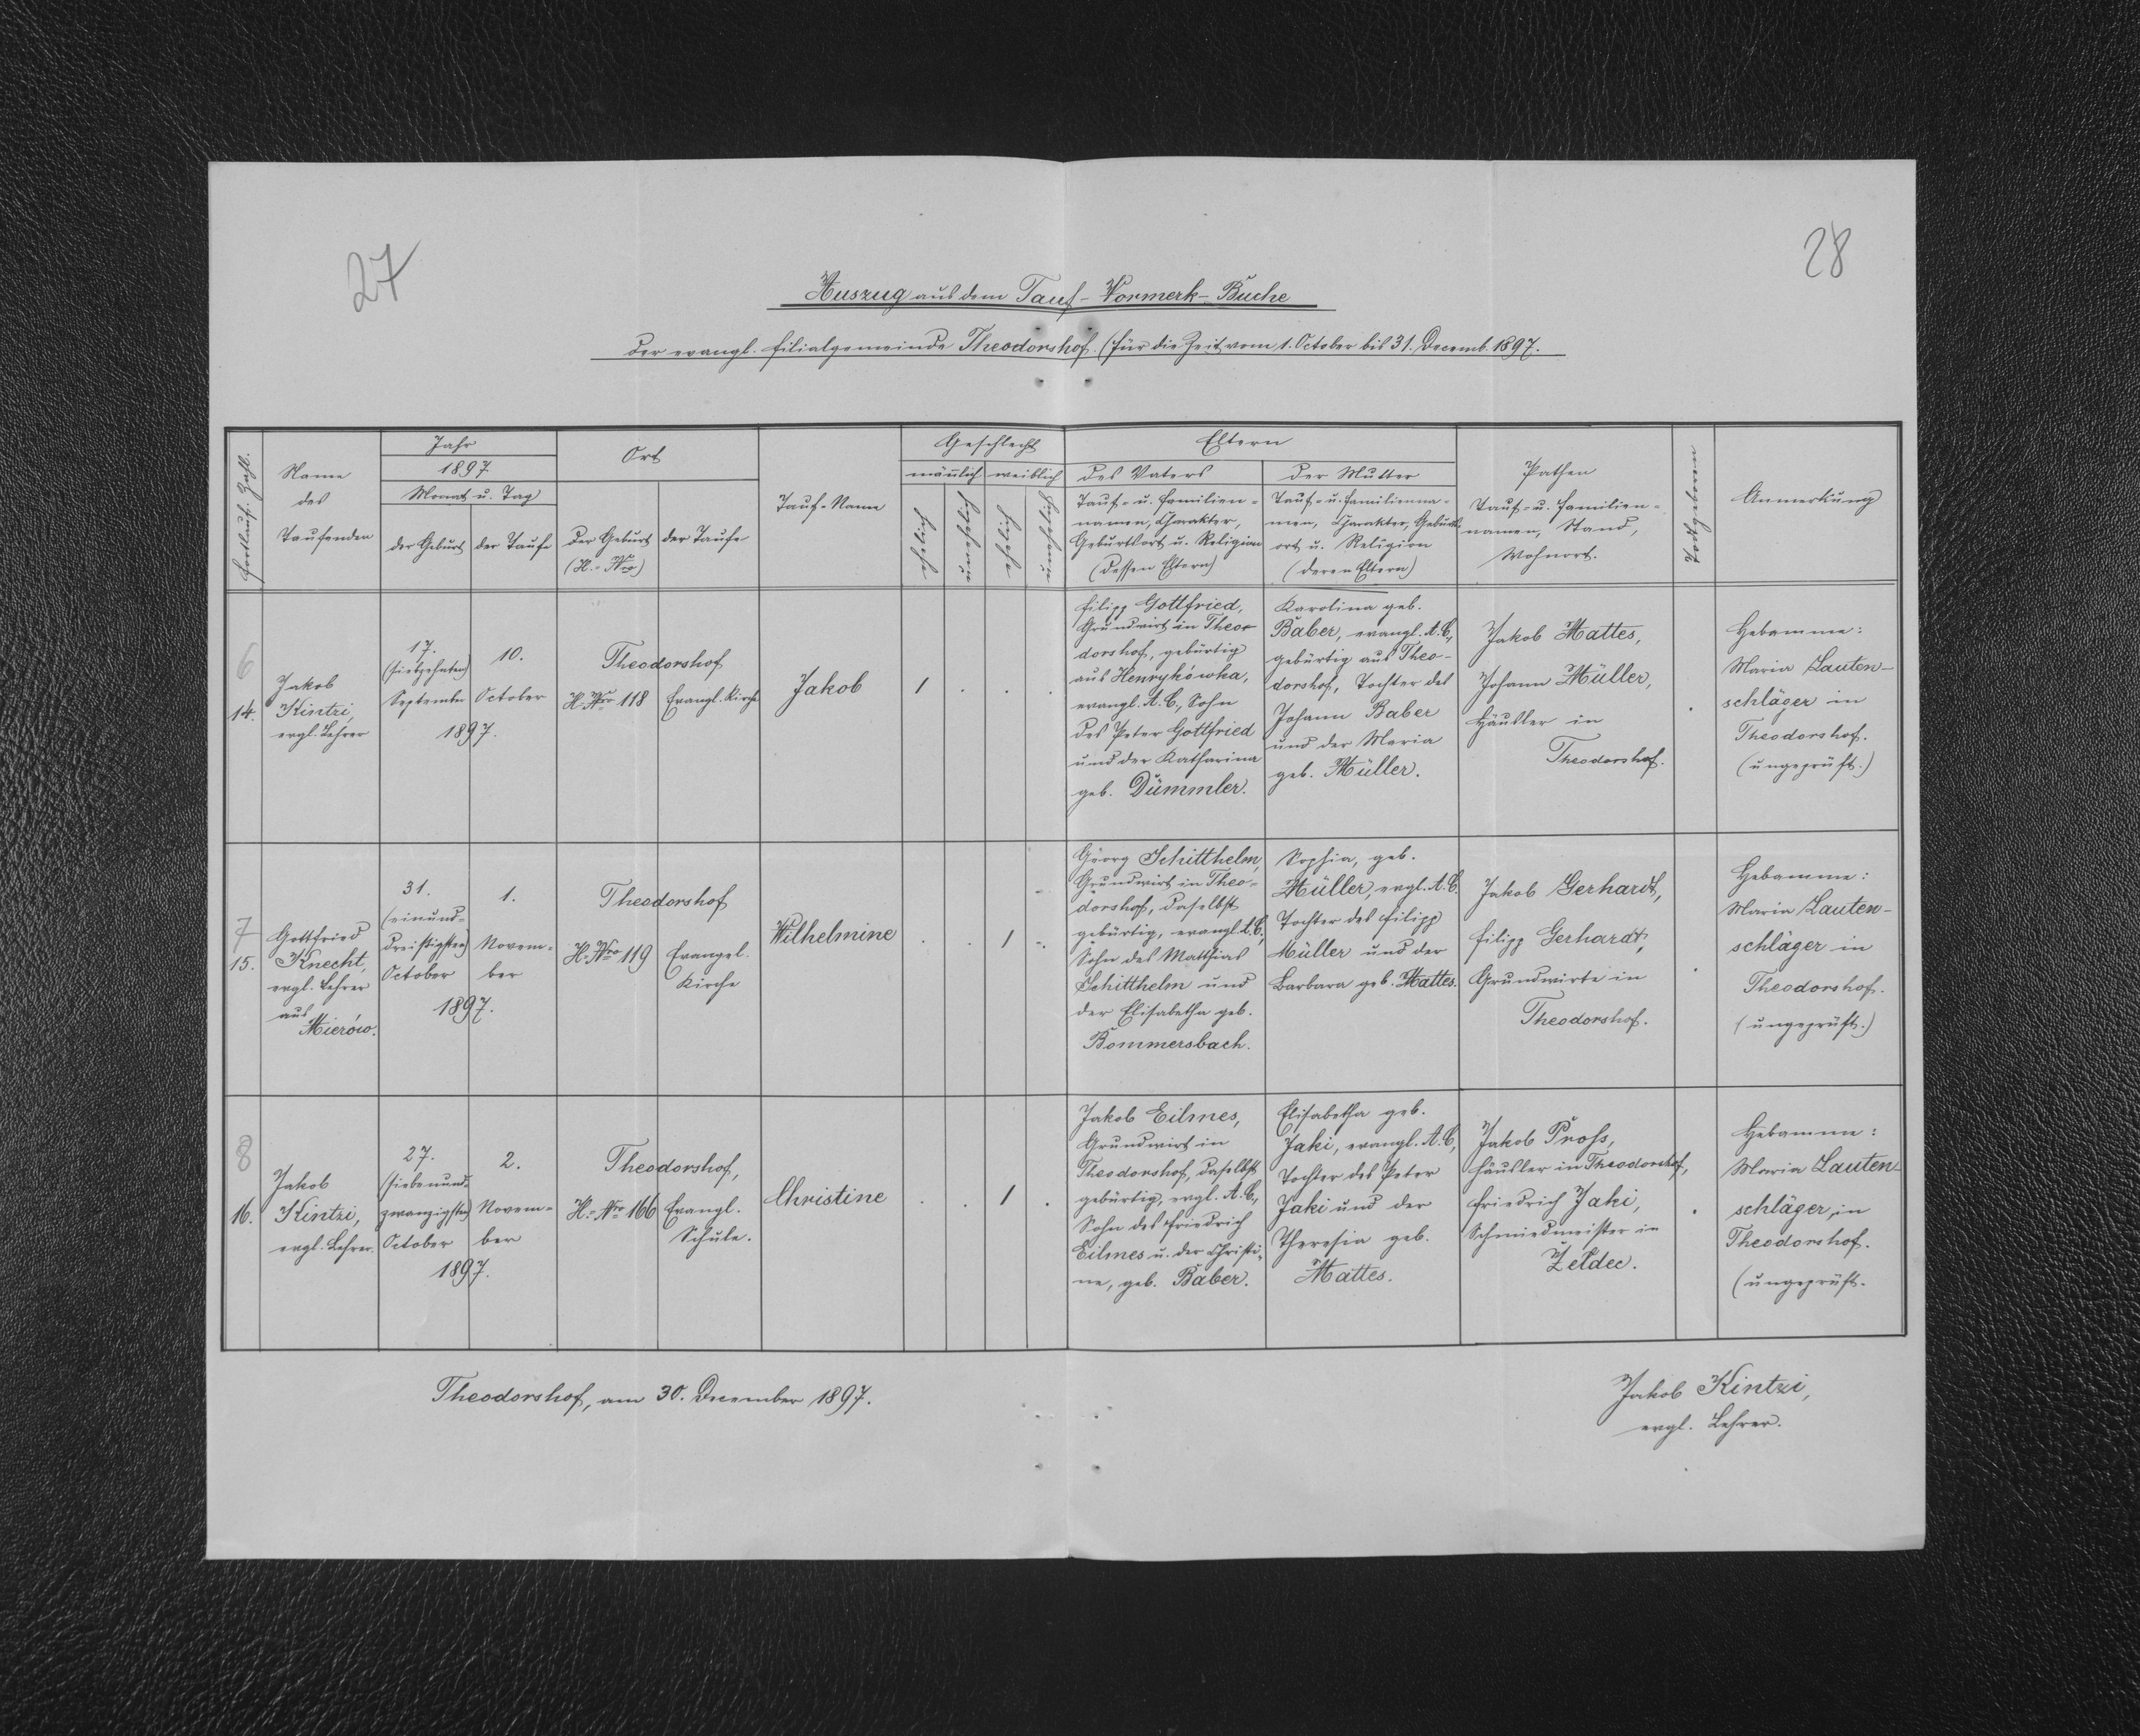 27
28
Auszug aus dem Tauf-Vormerk-Buche
der evangl. Filialgemeinde Theodorshof. (Für die Zeit vom 1. October bis 31. Decemb. 1897.
Fortlauf. Zahl.
Name
des
Taufenden
Jahr
1897
Monat u. Tag
der Geburt
der Taufe
Ort
der Geburt
(H.-Nro)
der Taufe
Tauf-Name
Geschlecht
männlich
weiblich
ehelich
unehelich
ehelich
unehelich
Eltern
des Vaters
Tauf- u. Familien-
namen, Charakter,
Geburtsort u. Religion
(dessen Eltern)
der Mutter
Tauf- u. Familienna-
men, Charakter, Geburts-
ort u. Religion
(deren Eltern)
Pathen
Tauf- u. Familien-
namen, Stand,
Wohnort.
Todtgeboren
Anmerkung
6
14.
Jakob
Kintzi,
evgl. Lehrer
17.
(siebzehnten)
September
10.
October
1897.
Theodorshof
H.-Nro 118
Evangl. Kirche
Jakob
1
Filipp Gottfried,
Grundwirt in Theo-
dorshof, gebürtig
aus Henrykówka,
evangl. A. C., Sohn
des Peter Gottfried
und der Katharina
geb. Dümmler.
Karolina geb.
Baber, evangl. A. C.,
gebürtig aus Theo-
dorshof, Tochter des
Johann Baber
und der Maria
geb. Müller.
Jakob Mattes,
Johann Müller,
Häusler in
Theodorshof.
Hebamme:
Maria Lauten-
schläger in
Theodorshof.
(ungeprüft.)
7
15.
Gottfried
Knecht,
evgl. Lehrer
aus
Mierów.
31.
(einund-
dreißigsten)
October
1.
Novem-
ber
1897.
Theodorshof
H.-Nro 119
Evangel.
Kirche
Wilhelmine
1
Georg Schitthelm,
Grundwirt in Theo-
dorshof, daselbst
gebürtig, evangl. A. C.,
Sohn des Matthias
Schitthelm und
der Elisabetha geb.
Bommersbach.
Sophia, geb.
Müller, evgl. A. C.
Tochter des Filipp
Müller und der
Barbara geb. Mattes.
Jakob Gerhardt,
Filipp Gerhardt,
Grundwirte in
Theodorshof.
Hebamme:
Maria Lauten-
schläger in
Theodorshof.
(ungeprüft.)
8
16.
Jakob
Kintzi,
evgl. Lehrer.
27.
(siebenund-
zwanzigsten)
October
2.
Novem-
ber
1897.
Theodorshof,
H.-Nro 166
Evangl.
Schule.
Christine
1
Jakob Eilmes,
Grundwirt in
Theodorshof, daselbst
gebürtig, evgl. A. C.,
Sohn des Friedrich
Eilmes u. der Christi-
ne, geb. Baber.
Elisabetha geb.
Jaki, evangl. A. C.,
Tochter des Peter
Jaki und der
Theresia geb.
Mattes.
Jakob Proß,
Häusler in Theodorshof,
Friedrich Jaki,
Schmiedmeister in
Żeldec.
Hebamme:
Maria Lauten-
schläger, in
Theodorshof.
(ungeprüft.
Theodorshof, am 30. December 1897.
Jakob Kintzi,
evgl. Lehrer.